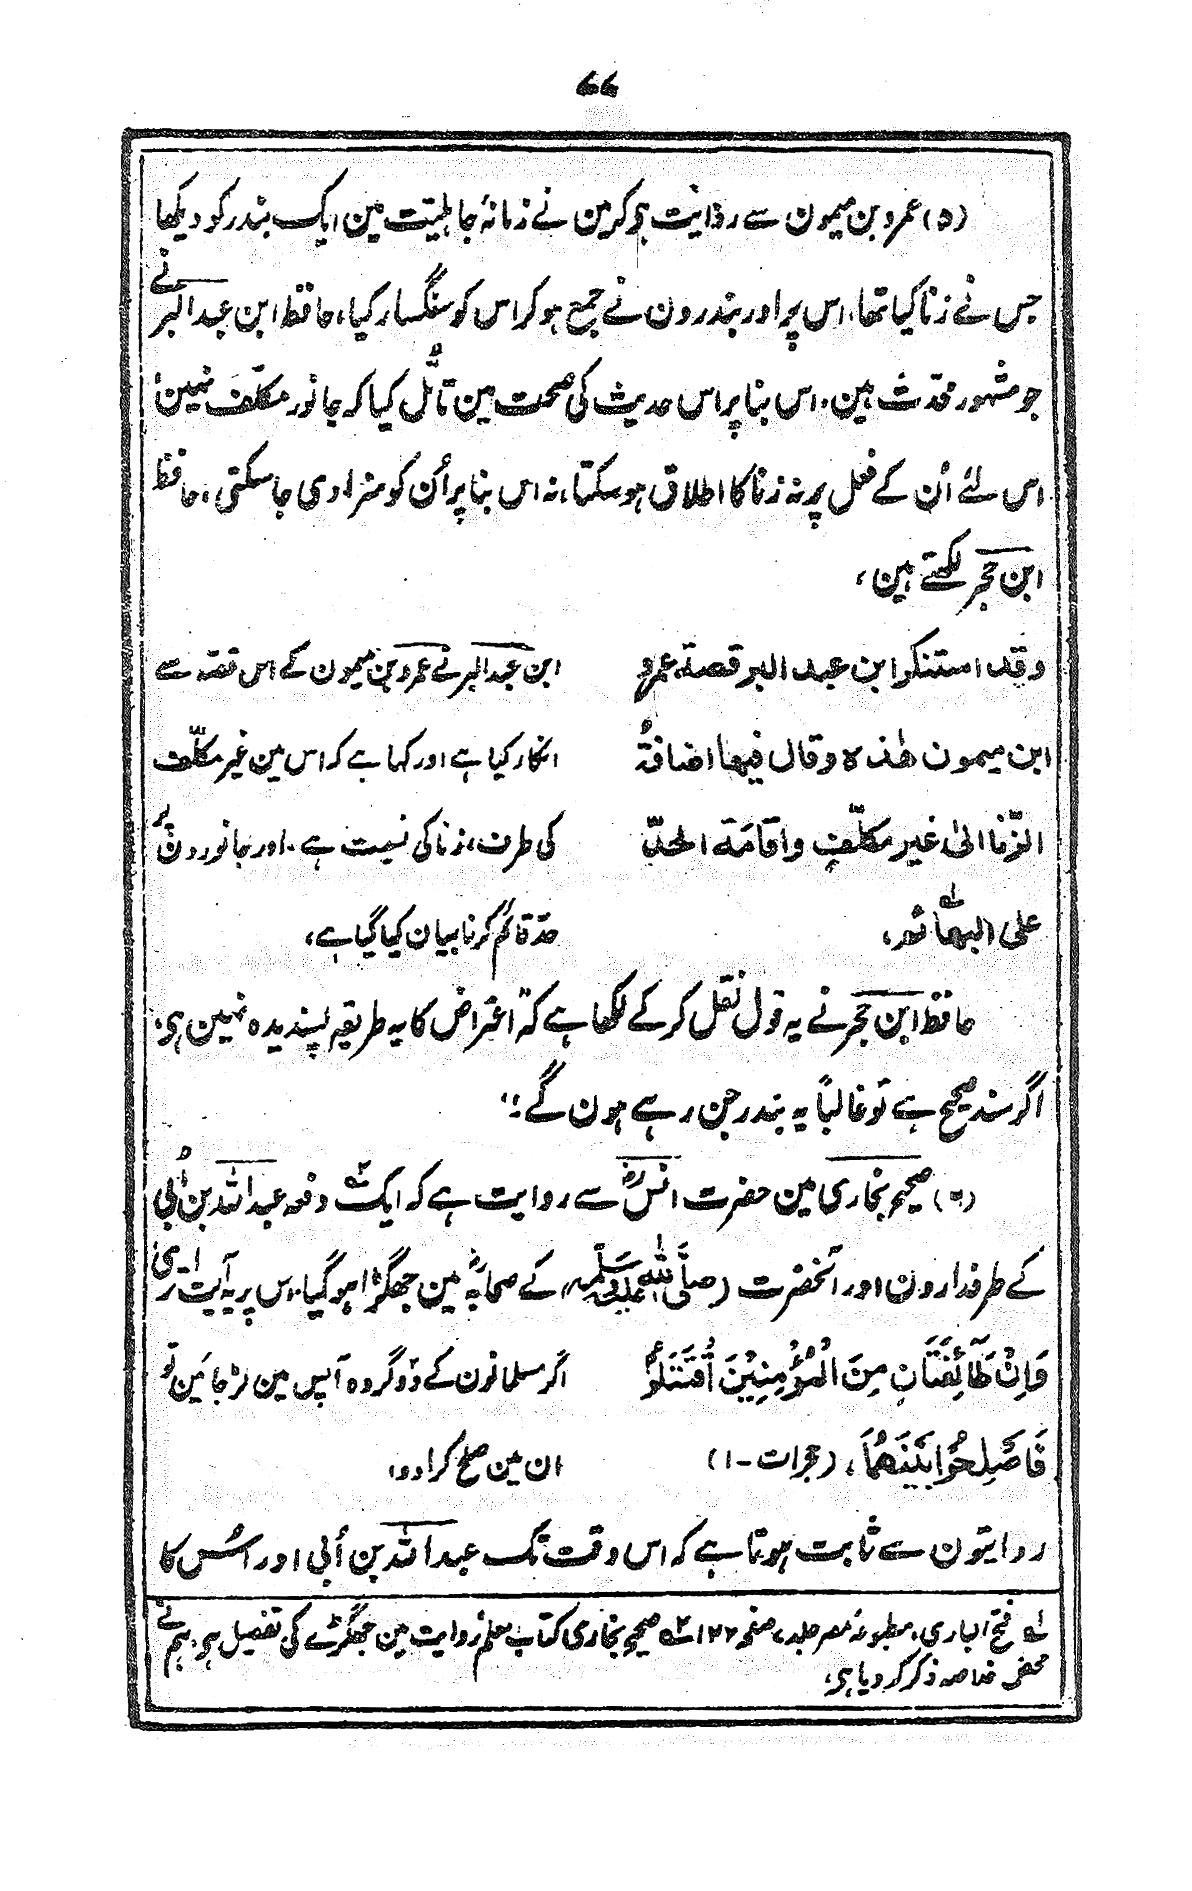 ۷۷
(۵) عمرو بن میمون سے روایت ہو کر مین نے زمانۂ جاہلیت مین ایک بندر کو دیکھا
جس نے زنا کیا تھا، اس پر اور بندرون نے جمع ہو کر اس کو سنگسار کیا، حافظ ابن عبد البر نے
جو مشہور محدّث ہین، اس بنا پر اس حدیث کی صحت مین تأمّل کیا کہ جانور مکلّف نہین
اس لئے اُن کے فعل پر نہ زنا کا اطلاق ہو سکتا، نہ اس بنا پر اُن کو سزا دی جا سکتی، حافظ
ابن حجر لکھتے ہین،
وقد استنکر ابن عبد البر قصة عمرو    ابن عبد البر نے عمرو بن میمون کے اس قصہ سے
ابن میمون ھٰذہ وقال فیھا اضافةُ    انکار کیا ہے اور کہا ہے کہ اس مین غیر مکلّف
الزّنا الیٰ غیر مکلّفٍ واقامَة الحدّ    کی طرف، زنا کی نسبت ہے. اور جانورون پر
علی البھائمِ،    حدّ قائم کرنا بیان کیا گیا ہے،
حافظ ابن حجر نے یہ قول نقل کر کے لکھا ہے کہ "اعتراض کا یہ طریقہ پسندیدہ نہین ہی،
اگر سند صحیح ہے تو غالباً یہ بندر جن رہے ہون گے"؛
(۶) صحیح بخاری مین حضرت انسؓ سے روایت ہے کہ ایک دفعہ عبد اللہ بن اُبی
کے طرفدارون اور آنحضرت (صلّی اللہ علیہ وسلّم) کے صحابہؓ مین جھگڑا ہو گیا. اس پر یہ آیت اتری
وَاِنْ طَآئِفَتَانِ مِنَ الْمُؤْمِنِیْنَ اقْتَتَلُوْا    اگر مسلمانون کے دو گروہ آپس مین لڑ جائین تو
فَاَصْلِحُوْا بَیْنَھُمَا، (حجرات - ۱)    ان مین صلح کرا دو،
روایتون سے ثابت ہوتا ہے کہ اس وقت تک عبد اللہ بن اُبی اور اُس کا
لہ فتح الباری، مطبوعۂ مصر جلد، صفحہ ۱۲۲ ۲ہ صحیح بخاری کتاب مین جھگڑے کی تفصیل ہی، ہم نے
محض خلاصہ ذکر کر دیا ہی،